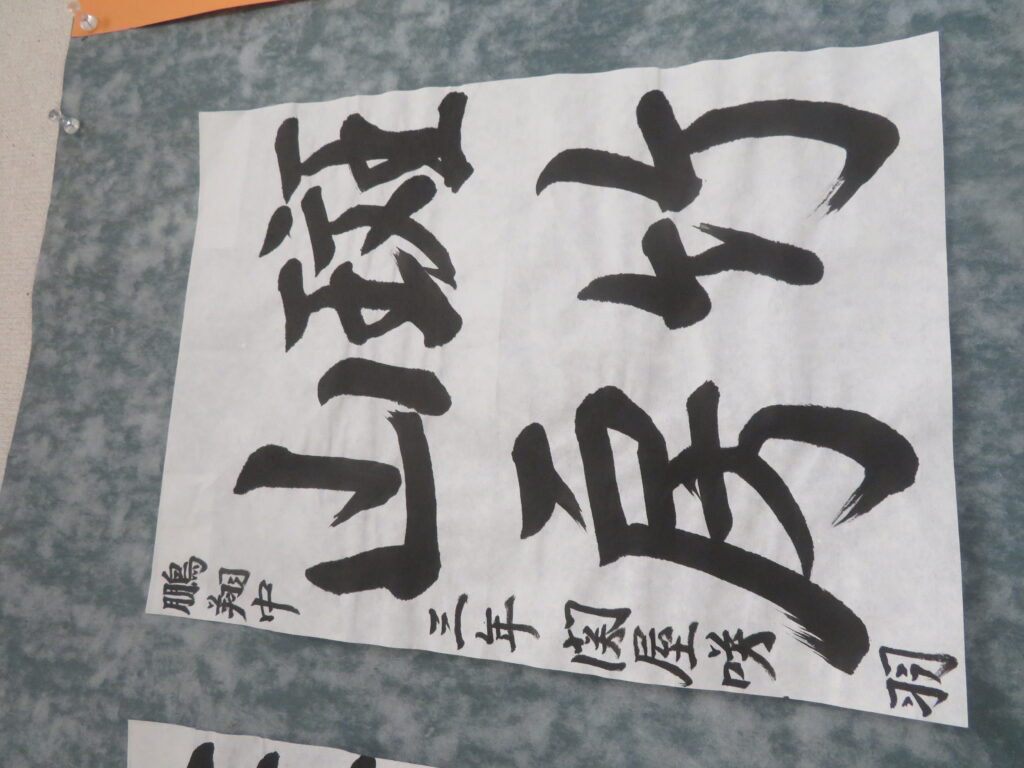 翠竹
山房
鵬翔中 三年 関屋咲羽